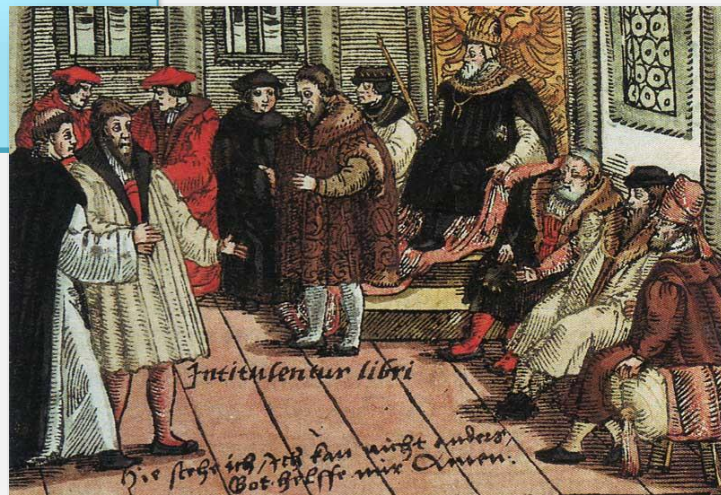 Intitulentur libri
Hie stehe ich / ich kan nicht anders /
Got helffe mir Amen.